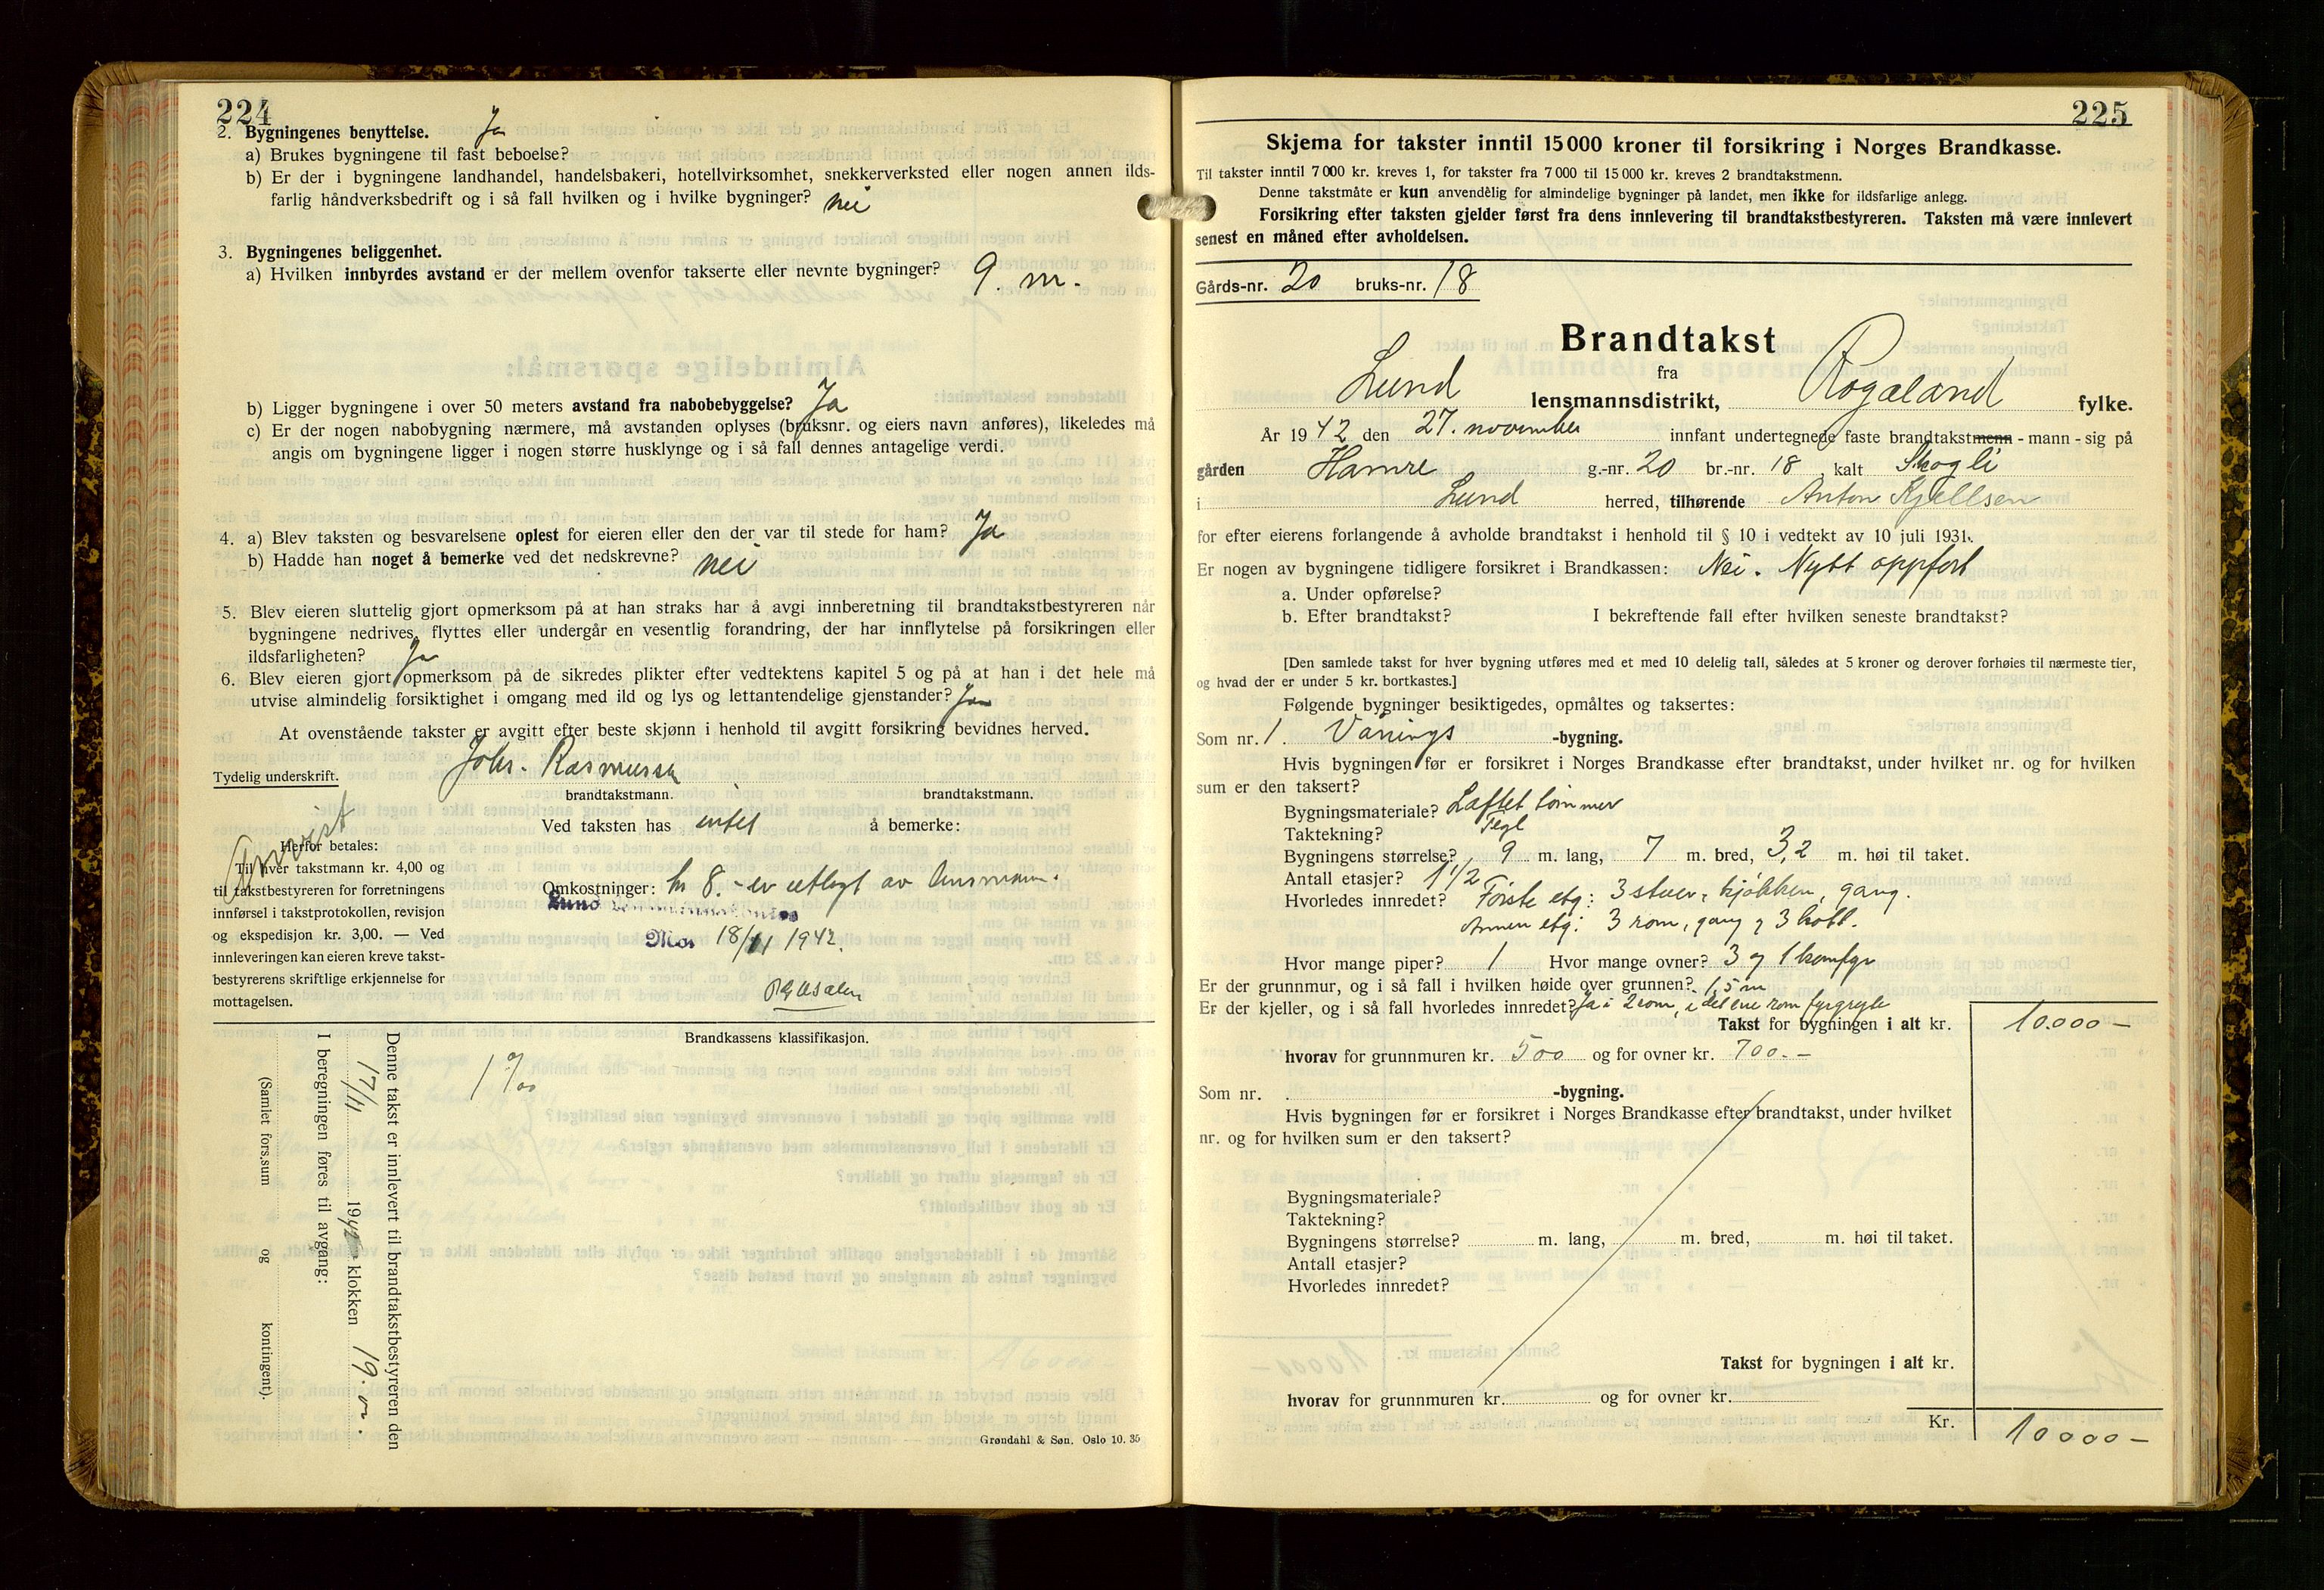 224
2. Bygningenes benyttelse. Ja
a) Brukes bygningene til fast beboelse?
b) Er der i bygningene landhandel, handelsbakeri, hotellvirksomhet, snekkerverksted eller nogen annen ilds-
farlig håndverksbedrift og i så fall hvilken og i hvilke bygninger? nei
3. Bygningenes beliggenhet.
a) Hvilken innbyrdes avstand er der mellem ovenfor takserte eller nevnte bygninger? 9. m.
b) Ligger bygningene i over 50 meters avstand fra nabobebyggelse? Ja
c) Er der nogen nabobygning nærmere, må avstanden oplyses (bruksnr. og eiers navn anføres), likeledes må
angis om bygningene ligger i nogen større husklynge og i så fall dennes antagelige verdi.
4. a) Blev taksten og besvarelsene oplest for eieren eller den der var til stede for ham? Ja
b) Hadde han noget å bemerke ved det nedskrevne? nei
5. Blev eieren sluttelig gjort opmerksom på at han straks har å avgi innberetning til brandtakstbestyreren når
bygningene nedrives, flyttes eller undergår en vesentlig forandring, der har innflytelse på forsikringen eller
ildsfarligheten? Ja
6. Blev eieren gjort opmerksom på de sikredes plikter efter vedtektens kapitel 5 og på at han i det hele må
utvise almindelig forsiktighet i omgang med ild og lys og lettantendelige gjenstander? Ja
At ovenstående takster er avgitt efter beste skjønn i henhold til avgitt forsikring bevidnes herved.
Tydelig underskrift. Johs. Rasmussen
brandtakstmann. brandtakstmann.
Ved taksten has intet å bemerke:
Herfor betales:
Til hver takstmann kr. 4,00 og
til takstbestyreren for forretningens
innførsel i takstprotokollen, revisjon
og ekspedisjon kr. 3,00. — Ved
innleveringen kan eieren kreve takst-
bestyrerens skriftlige erkjennelse for
mottagelsen.
Omkostninger: kr 8.- er utlagt av lensmann.
Lund Lensmannskontor
Moi 18/11 1942.
Brandkassens klassifikasjon.
1 ‰
Denne takst er innlevert til brandtakstbestyreren den
17/11 1942 klokken 19.00.
I beregningen føres til avgang:
(Samlet fors.sum og kontingent).
Grøndahl & Søn. Oslo 10. 35
225
Skjema for takster inntil 15 000 kroner til forsikring i Norges Brandkasse.
Til takster inntil 7 000 kr. kreves 1, for takster fra 7 000 til 15 000 kr. kreves 2 brandtakstmenn.
Denne takstmåte er kun anvendelig for almindelige bygninger på landet, men ikke for ildsfarlige anlegg.
Forsikring efter taksten gjelder først fra dens innlevering til brandtakstbestyreren. Taksten må være innlevert
senest en måned efter avholdelsen.
Gårds-nr. 20 bruks-nr. 18
Brandtakst
fra
Lund lensmannsdistrikt, Rogaland fylke.
År 1942 den 27. november innfant undertegnede faste brandtakstmenn - mann - sig på
gården Hamre g.-nr. 20 br.-nr. 18 kalt Skogli
i Lund herred, tilhørende Anton Kjellsen
for efter eierens forlangende å avholde brandtakst i henhold til § 10 i vedtekt av 10 juli 1931.
Er nogen av bygningene tidligere forsikret i Brandkassen: Nei. Nytt oppført
a. Under opførelse?
b. Efter brandtakst? I bekreftende fall efter hvilken seneste brandtakst?
[Den samlede takst for hver bygning utføres med et med 10 delelig tall, således at 5 kroner og derover forhøies til nærmeste tier,
og hvad der er under 5 kr. bortkastes.]
Følgende bygninger besiktigedes, opmåltes og taksertes:
Som nr. 1. Vånings -bygning.
Hvis bygningen før er forsikret i Norges Brandkasse efter brandtakst, under hvilket nr. og for hvilken
sum er den taksert?
Bygningsmateriale? Laftet tømmer
Taktekning? Tegl
Bygningens størrelse? 9 m. lang, 7 m. bred, 3,2 m. høi til taket.
Antall etasjer? 1 1/2
Hvorledes innredet? Første etg: 3 stuer, kjøkken, gang.
Annen etg: 3 rom, gang og 3 kott.
Hvor mange piper? 1 Hvor mange ovner? 3 og 1 komfyr
Er der grunnmur, og i så fall i hvilken høide over grunnen? 1,5 m
Er der kjeller, og i så fall hvorledes innredet? Ja i 2 rom, i det ene rom fyrgryte
Takst for bygningen i alt kr. 10.000 —
hvorav for grunnmuren kr. 500 og for ovner kr. 700. —
Som nr. -bygning.
Hvis bygningen før er forsikret i Norges Brandkasse efter brandtakst, under hvilket
nr. og for hvilken sum er den taksert?
Bygningsmateriale?
Taktekning?
Bygningens størrelse? m. lang, m. bred, m. høi til taket.
Antall etasjer?
Hvorledes innredet?
Takst for bygningen i alt kr.
hvorav for grunnmuren kr. og for ovner kr.
Kr. 10000 —